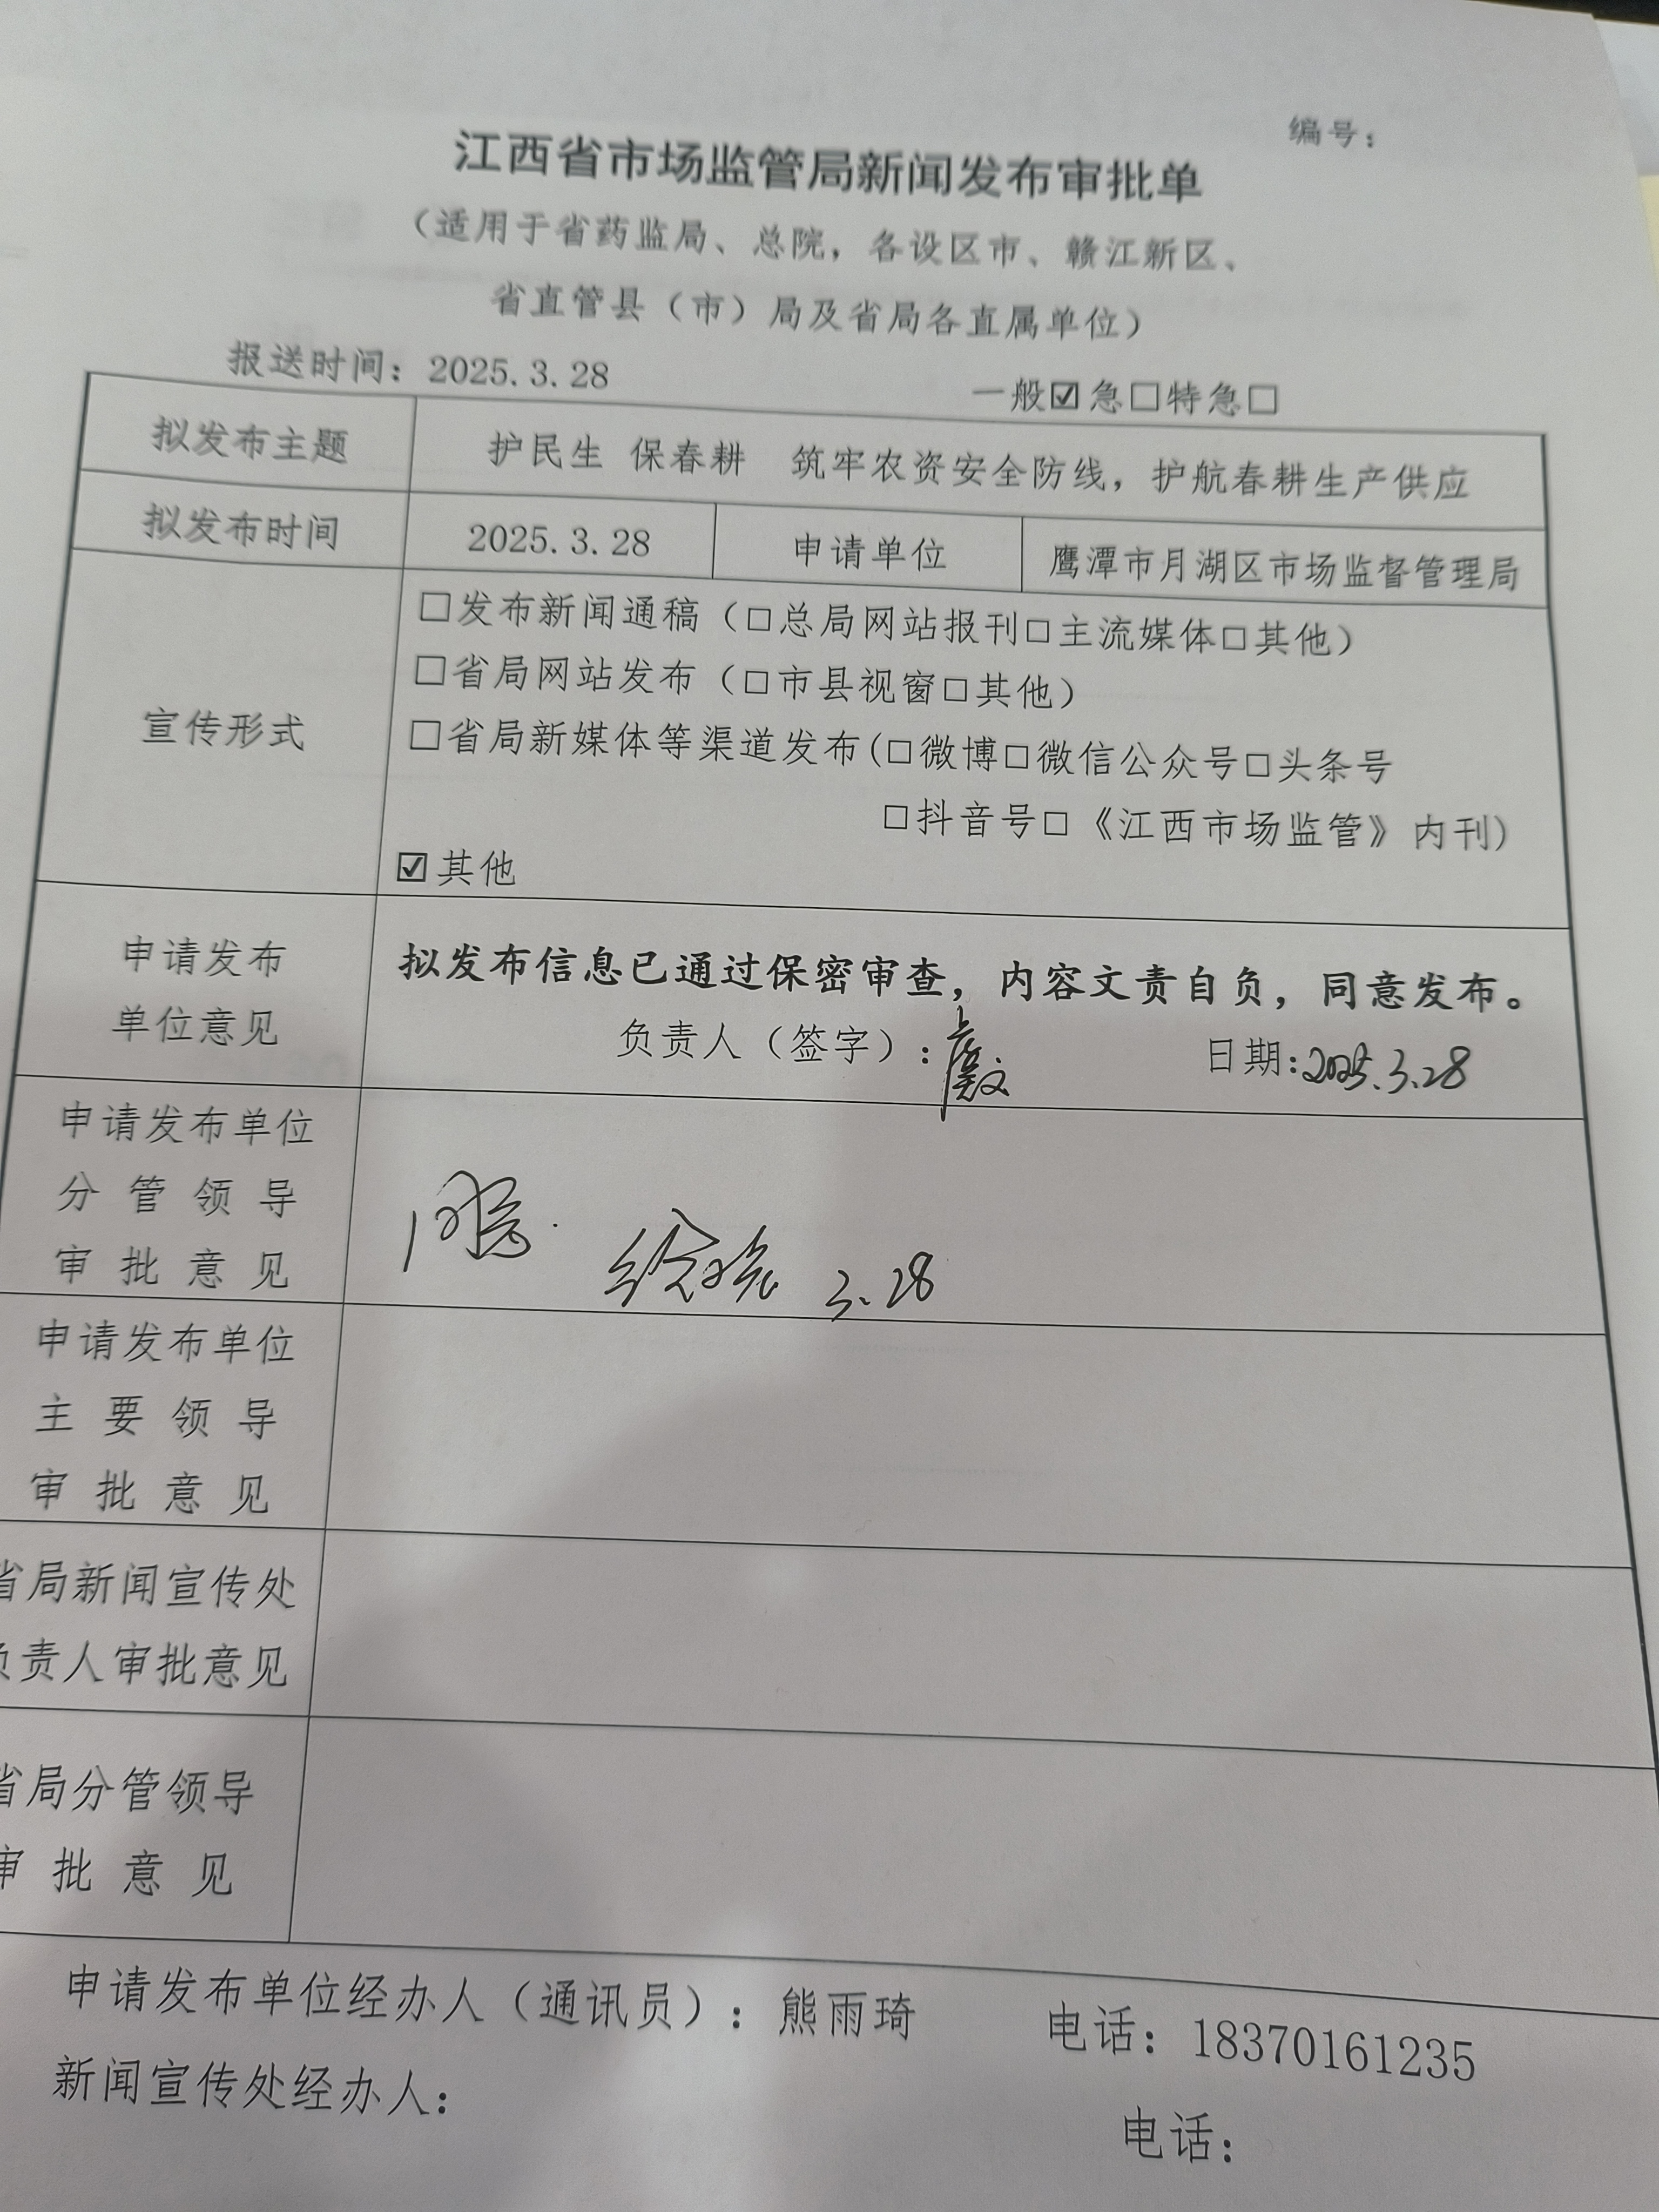 编号：
江西省市场监管局新闻发布审批单
（适用于省药监局、总院，各设区市、赣江新区、
省直管县（市）局及省局各直属单位）
报送时间：2025.3.28 一般☑急□特急□
拟发布主题 护民生 保春耕 筑牢农资安全防线，护航春耕生产供应
拟发布时间 2025.3.28 申请单位 鹰潭市月湖区市场监督管理局
宣传形式
□发布新闻通稿（□总局网站报刊□主流媒体□其他）
□省局网站发布（□市县视窗□其他）
□省局新媒体等渠道发布(□微博□微信公众号□头条号
□抖音号□《江西市场监管》内刊)
☑其他
申请发布
单位意见
拟发布信息已通过保密审查，内容文责自负，同意发布。
负责人（签字）： 日期:2025.3.28
申请发布单位
分管领导
审批意见
同意. 3.28
申请发布单位
主要领导
审批意见
省局新闻宣传处
负责人审批意见
省局分管领导
审批意见
申请发布单位经办人（通讯员）：熊雨琦 电话：18370161235
新闻宣传处经办人：
电话：